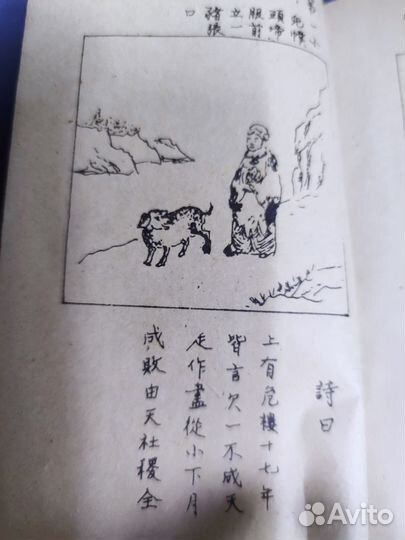 服前
立一
口
詩曰
上有危樓十七年
皆言欠一不成天
走作盡從小下月
成敗由天社稷全
Avito